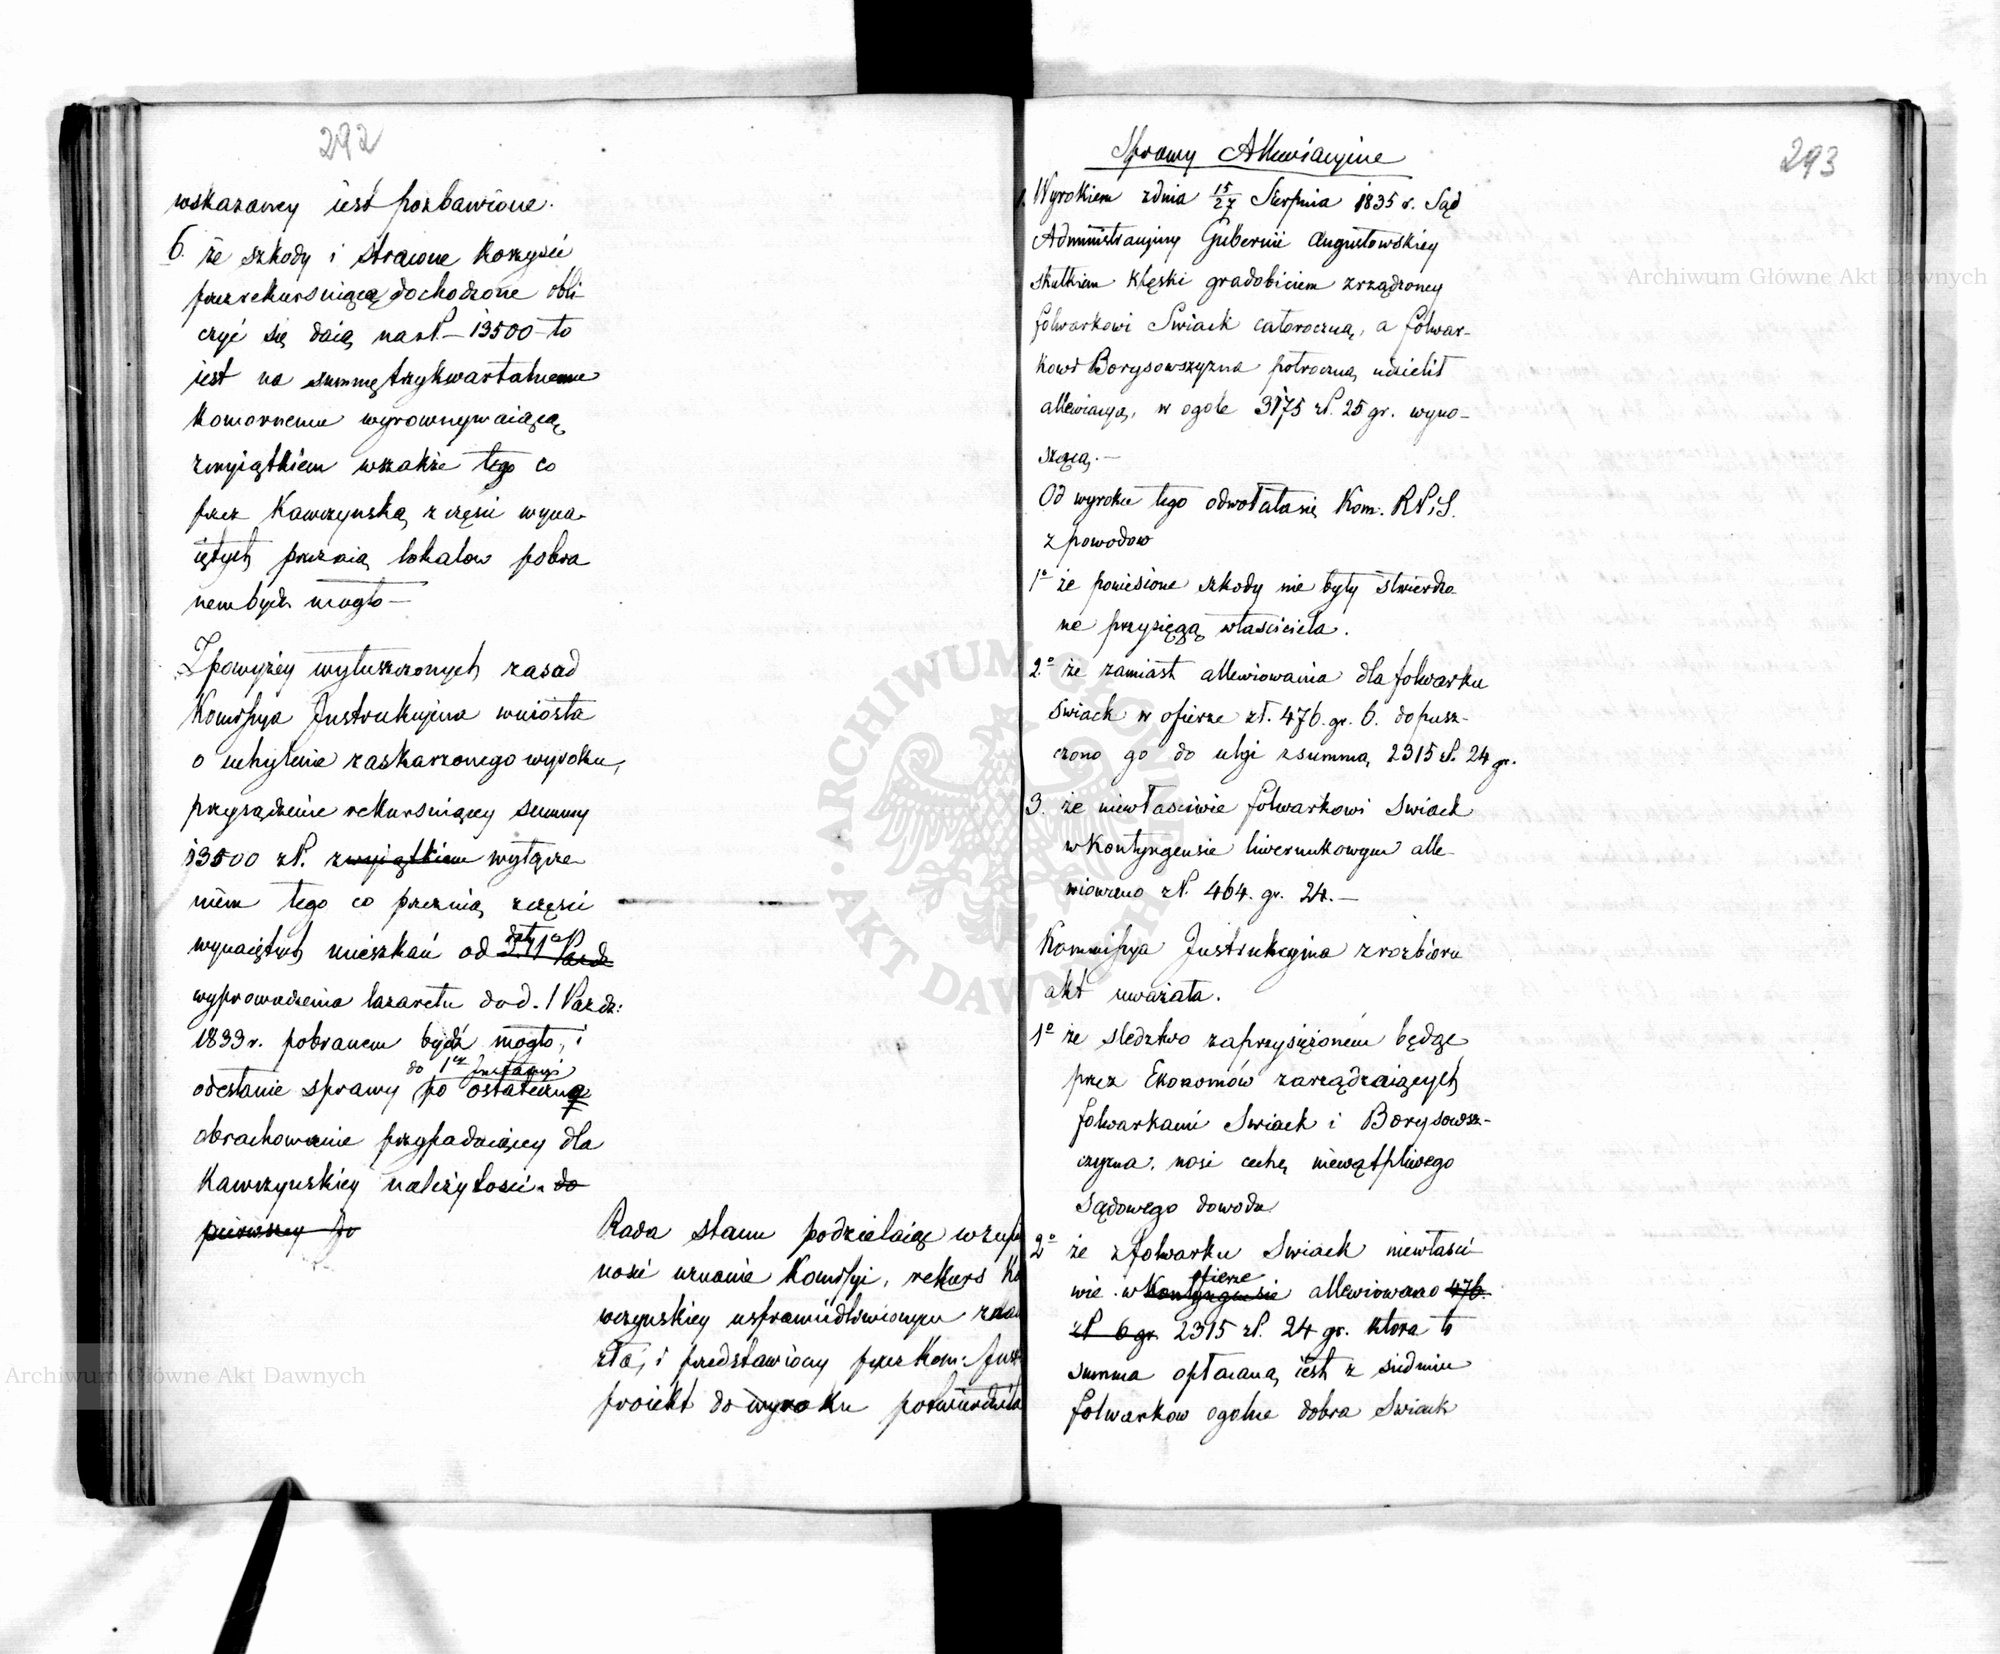 292
wskazaney iest pozbawione.
6. że szkody i stracone korzyści
przez rekursuiącą dochodzone obli-
czyć się daią na zł. — 13500 — to
iest na summę trzykwartalnemu
komornemu wyrownywaiącą
zwyiątkiem wszakże tego co
przez Kawczyńską z części wyna-
iętych przez nią lokalow pobra
nem bydź mogło —
Z powyżey wyłuszczonych zasad
Kommissya Instrukcyina wniosła
o uchylenie zaskarżonego wyroku,
przysądzenie rekursuiącey summy
13500 zł. zwyiątkiem wyłącze-
niem tego co przez nią z części
wynaiętych mieszkań od daty
wyprowadzenia lazaretu do d. 1 Paźdz:
1833 r. pobranem bydź mogło, i
do 1ey Instancyi
odesłanie sprawy po ostateczne
obrachowanie przypadaiącey dla
Kawczyńskiey należytości. do
pierwszey po
Rada stanu podzielaiąc w zupeł
ność uznanie Komissyi, rekurs Ka
wczyńskiey usprawiedliwionym znala
zła, i przedstawiony przez Kom: Inst
proiekt do wyroku potwierdziła
293
Sprawy Allewiacyine
1. Wyrokiem z dnia 15/27 Sierpnia 1835 r. Sąd
Administracyiny Gubernii Augustowskiey
skutkiem klęski gradobiciem zrządzoney
folwarkowi Swiack całoroczną, a folwar-
kowi Borysowszyzna połroczną udzielił
allewiacyą, w ogole 3175 zł. 25 gr. wyno-
szącą. —
Od wyroku tego odwołała się Kom. R.P.i S.
z powodow
1° że poniesione szkody nie były stwierdzo
ne przysięgą własciciela.
2° że zamiast allewiowania dla folwarku
Swiack w ofierze zł. 476. gr. 6. dopusz-
czono go do ulgi z summą 2315 zł. 24 gr.
3. że niewłasciwie folwarkowi Swiack
w Kontyngensie liwerunkowym alle-
wiowano zł. 464. gr. 24. —
Kommissya Instrukcyina z rozbioru
akt uważała.
1° że sledztwo zaprzysiężonem będąc
przez Ekonomów zarządzaiących
folwarkami Swiack i Borysowsz-
czyzna, nosi cechę niewątpliwego
sądowego dowodu
2° że z folwarku Swiack niewłasci-
ofierze
wie w Kontyngensie allewiowano 476.
zł 6 gr. 2315 zł. 24 gr. ktora to
summa opłacaną iest z siedmiu
folwarkow ogolne dobra Swiack
Archiwum Główne Akt Dawnych
Archiwum Główne Akt Dawnych
ARCHIWUM GŁÓWNE AKT DAWNYCH